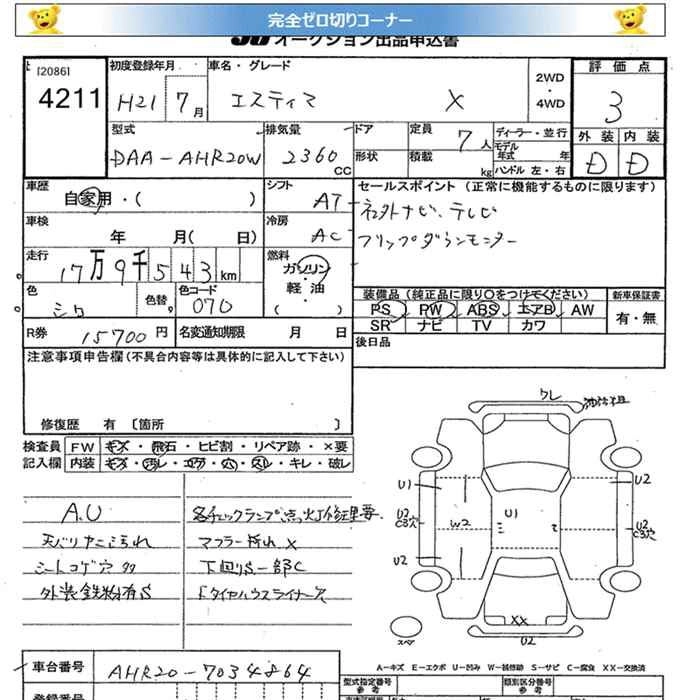 完全ゼロ切りコーナー
JU オークション出品申込書
[2086]
4211
初度登録年月
H21 7月
車名・グレード
エスティマ X
2WD
・
4WD
評価点
3
外装 内装
D D
型式
DAA-AHR20W
排気量
2360 CC
ドア
形状
定員 7人
積載 kg
ディーラー・並行
モデル年式 年
ハンドル 左・右
車歴
自家用・( )
シフト
AT
セールスポイント (正常に機能するものに限ります)
ネット外ナビ、テレビ
フリップダウンモニター
車検
年 月( 日)
冷房
AC
走行
17万9千543km
燃料
ガソリン
・
軽油
( )
色
シロ
色替
色コード
070
装備品 (純正品に限り○をつけてください)
PS PW ABS エアB AW
SR ナビ TV カワ
新車保証書
有・無
R券 15700円
名変通知期限 月 日
後日品
注意事項申告欄(不具合内容等は具体的に記入して下さい)
修復歴 有 [箇所 ]
検査員
記入欄
FW キズ・飛石・ヒビ割・リペア跡・×要
内装 キズ・汚レ・コゲ・穴・スレ・キレ・破レ
A.U
天バリヤニよごれ
シートコゲ穴多
外装鉄粉有S
各チェックランプ点灯修理要
マフラー折れ×
下回りS一部C
ドタイヤハウスライナーA
ワレ
U1
U2
C3穴
U2
W2
U1
U2
U2
C3穴
XX
U2
スペア
A—キズ E—エクボ U—凹み W—補修跡 S—サビ C—腐食 XX—交換済
車台番号
AHR20-7034864
登録番号
型式指定番号
参考
類別区分番号
参考